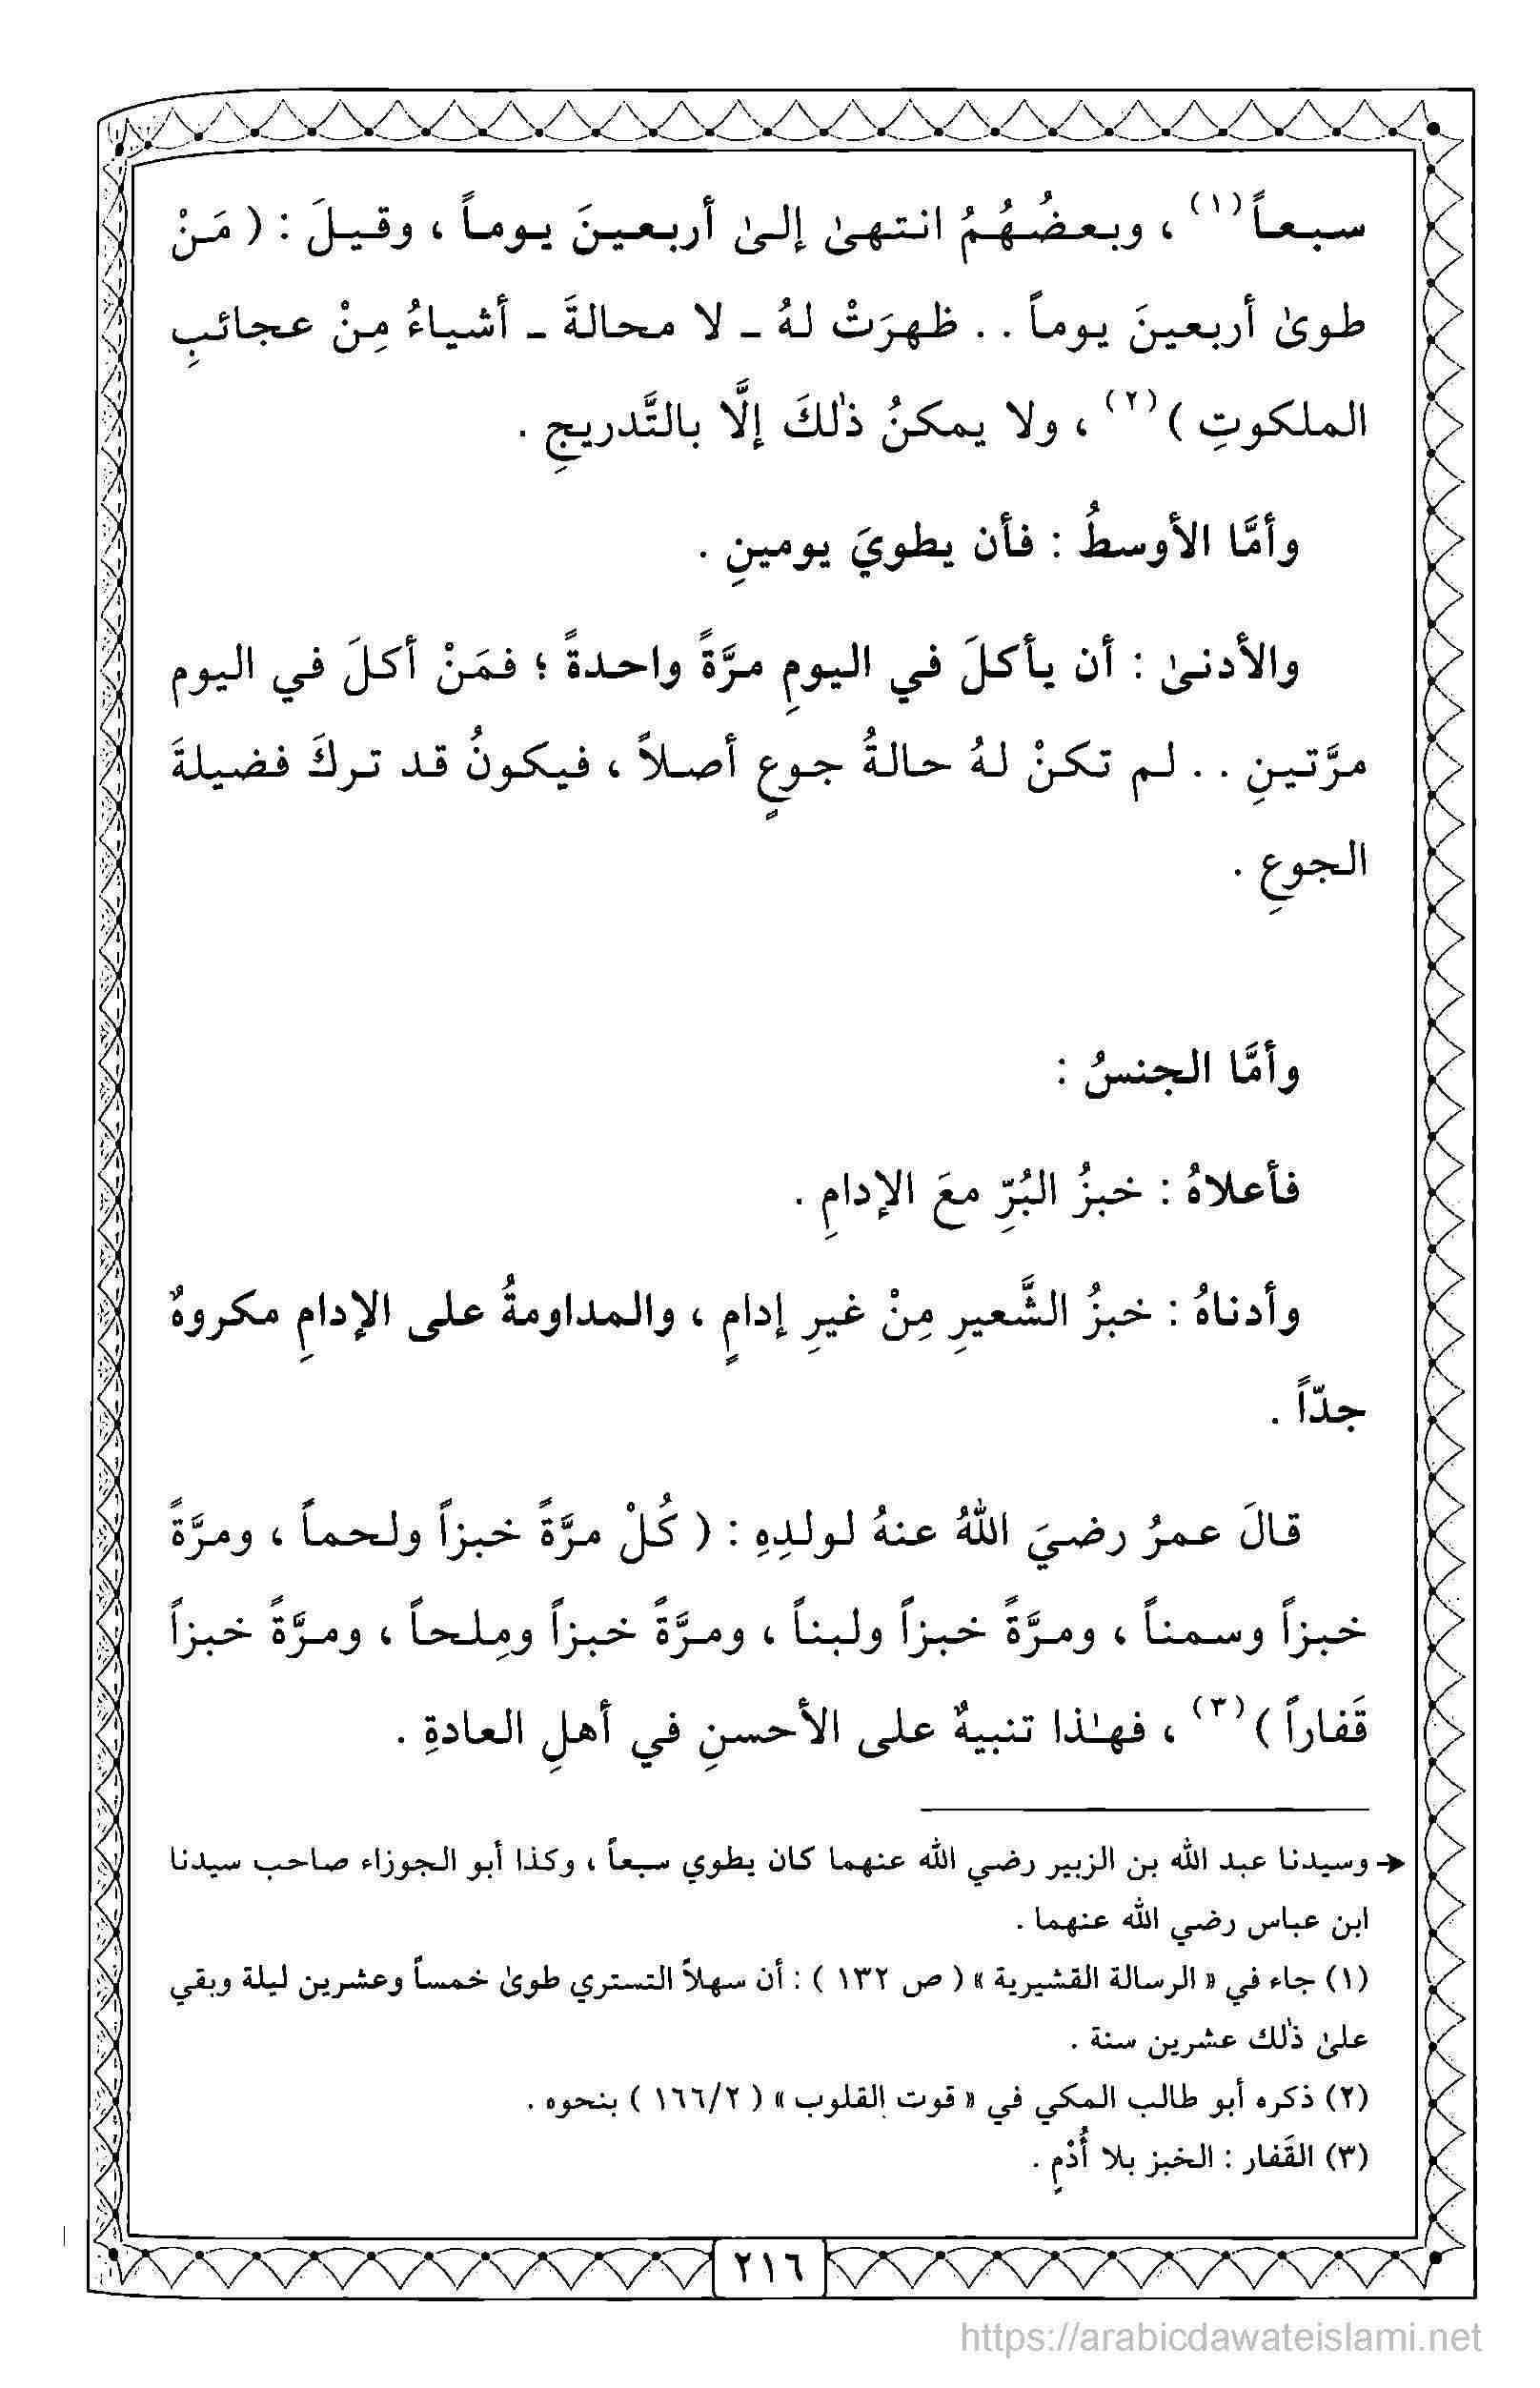 سبعاً(١) ، وبعضُهُمُ انتهىٰ إلىٰ أربعينَ يوماً ، وقيلَ : ( مَنْ
طوىٰ أربعينَ يوماً . . ظهرَتْ لهُ ـ لا محالةَ ـ أشياءُ مِنْ عجائبِ
الملكوتِ )(٢) ، ولا يمكنُ ذٰلكَ إلَّا بالتَّدريجِ .
وأمَّا الأوسطُ : فأن يطويَ يومينِ .
والأدنىٰ : أن يأكلَ في اليومِ مرَّةً واحدةً ؛ فمَنْ أكلَ في اليوم
مرَّتينِ . . لم تكنْ لهُ حالةُ جوعٍ أصلاً ، فيكونُ قد تركَ فضيلةَ
الجوعِ .
وأمَّا الجنسُ :
فأعلاهُ : خبزُ البُرِّ معَ الإدامِ .
وأدناهُ : خبزُ الشَّعيرِ مِنْ غيرِ إدامٍ ، والمداومةُ على الإدامِ مكروهٌ
جدّاً .
قالَ عمرُ رضيَ اللهُ عنهُ لولدِهِ : ( كُلْ مرَّةً خبزاً ولحماً ، ومرَّةً
خبزاً وسمناً ، ومرَّةً خبزاً ولبناً ، ومرَّةً خبزاً ومِلحاً ، ومرَّةً خبزاً
قَفاراً )(٣) ، فهـٰذا تنبيهٌ على الأحسنِ في أهلِ العادةِ .
← وسيدنا عبد الله بن الزبير رضي الله عنهما كان يطوي سبعاً ، وكذا أبو الجوزاء صاحب سيدنا
ابن عباس رضي الله عنهما .
(١) جاء في « الرسالة القشيرية » ( ص ١٣٢ ) : أن سهلاً التستري طوىٰ خمساً وعشرين ليلة وبقي
علىٰ ذٰلك عشرين سنة .
(٢) ذكره أبو طالب المكي في « قوت القلوب » ( ١٦٦/٢ ) بنحوه .
(٣) القَفار : الخبز بلا أُدْمٍ .
٢١٦
https://arabicdawateislami.net